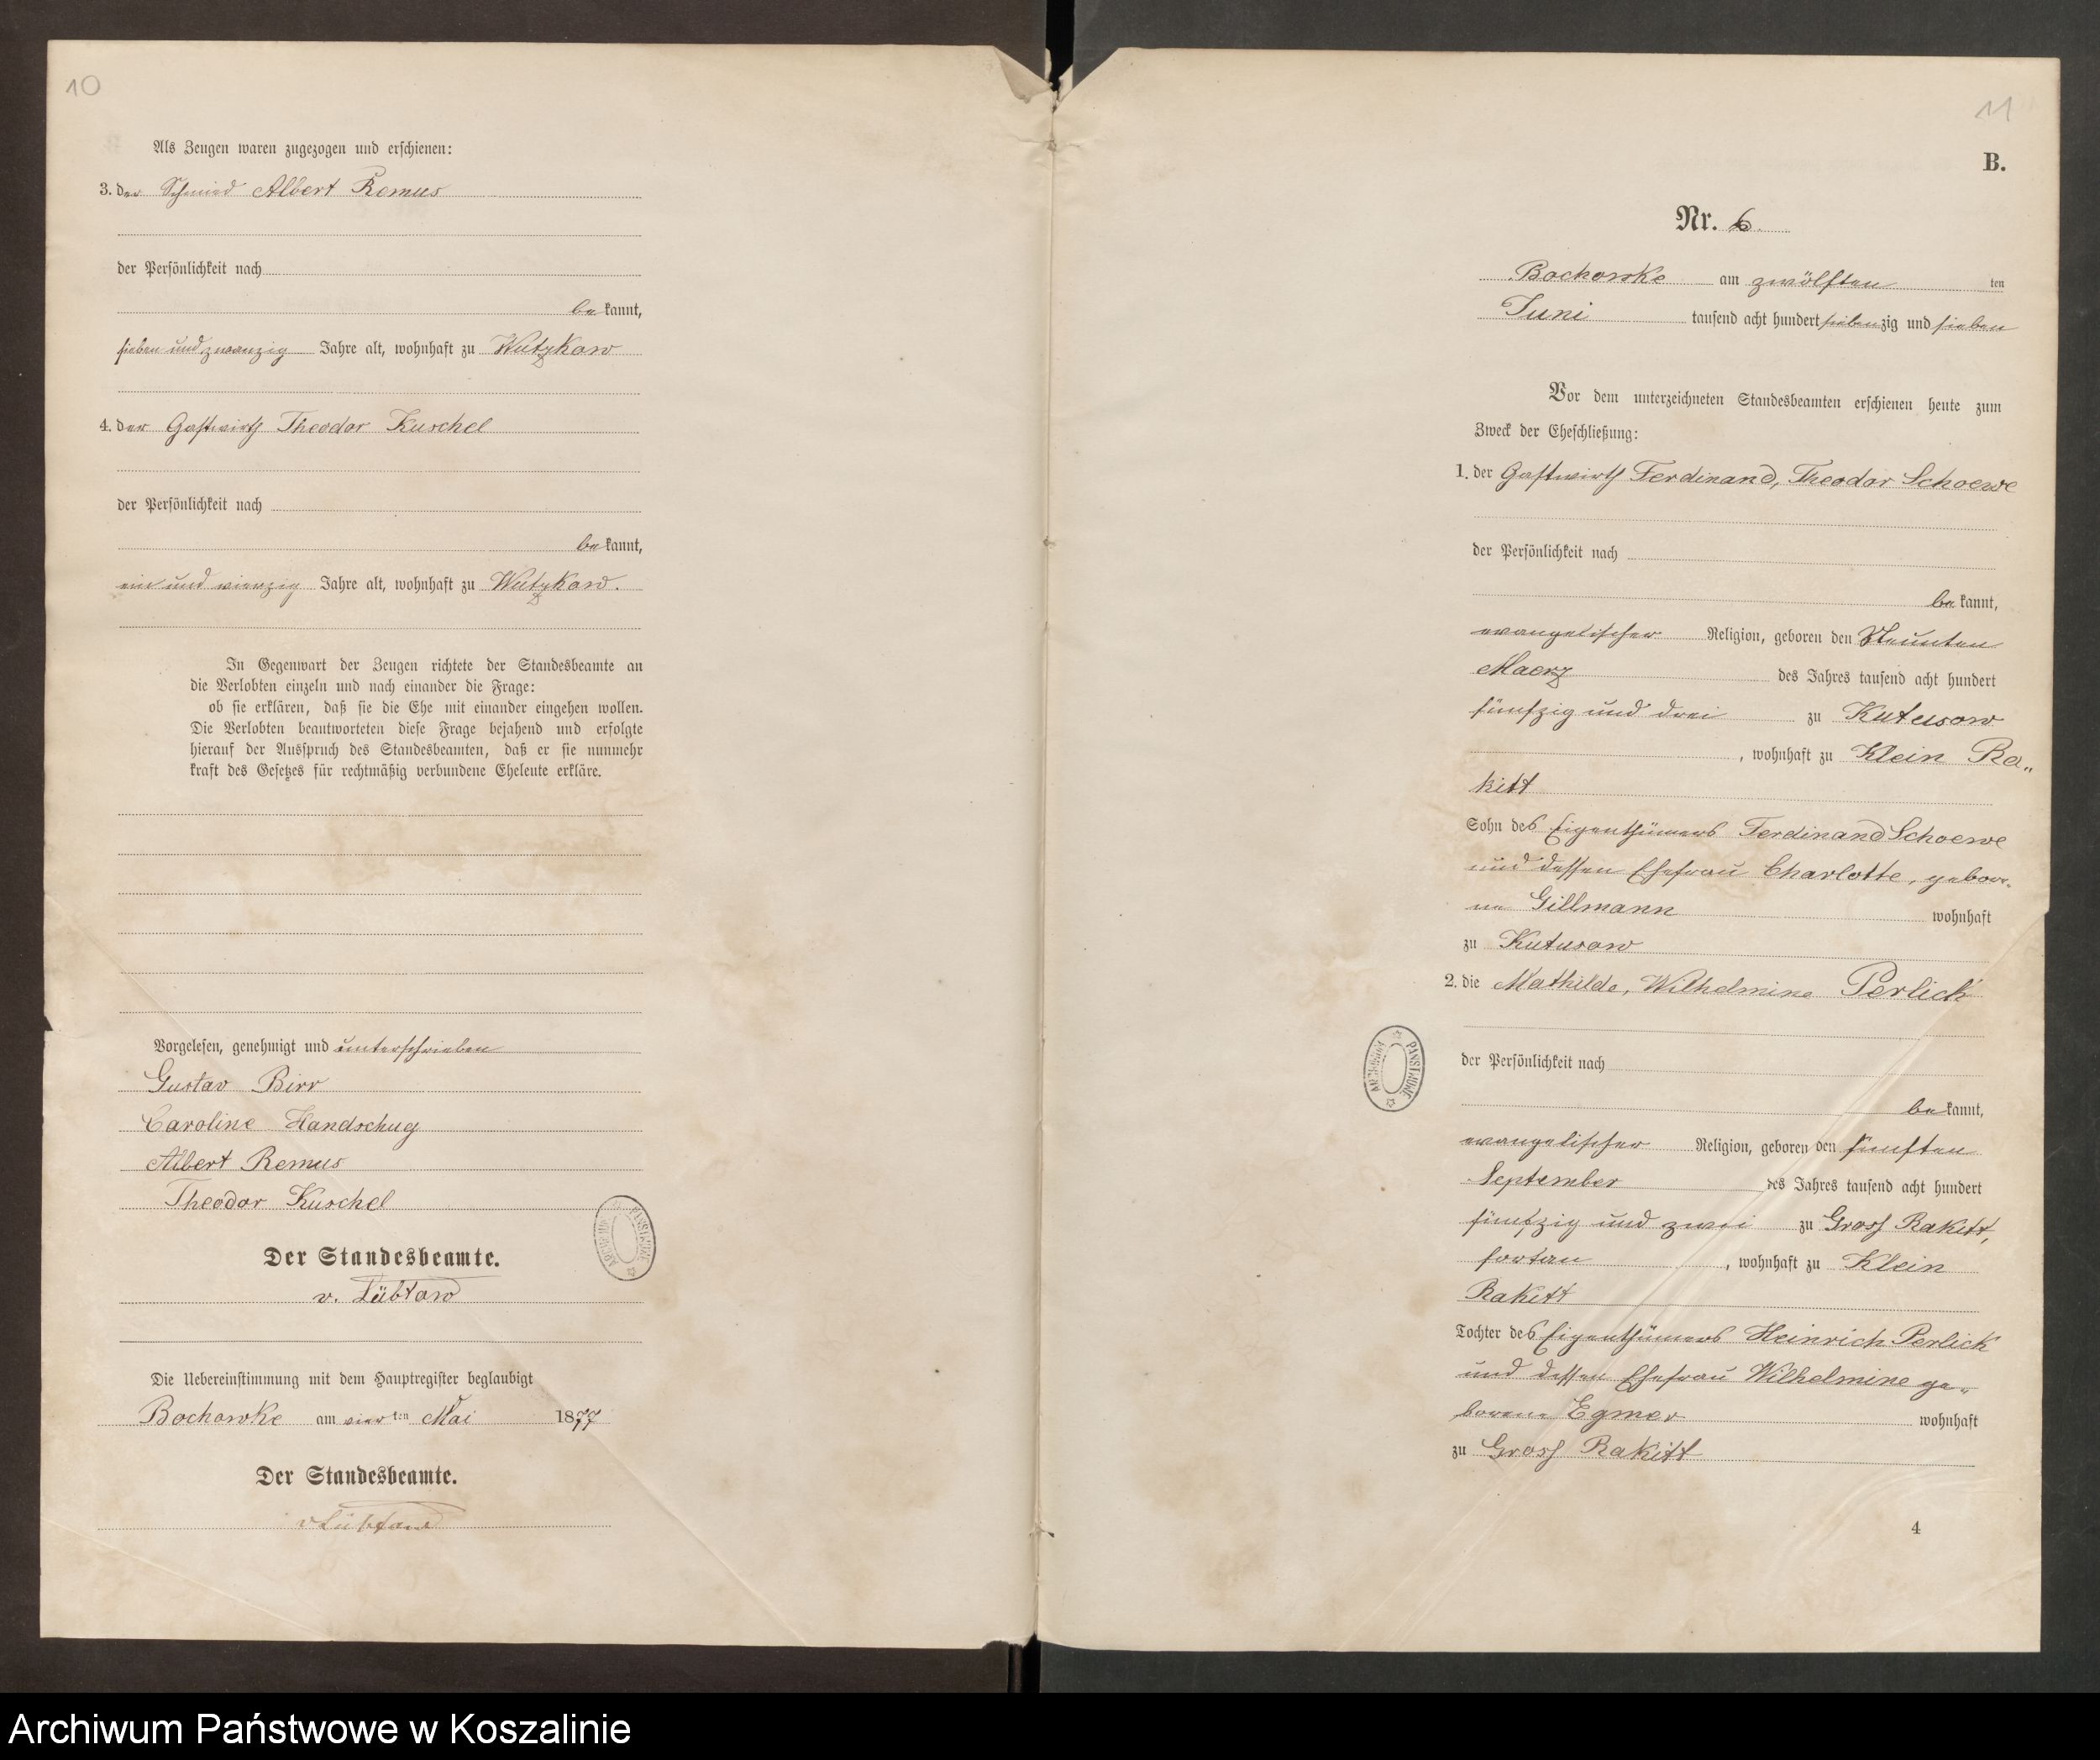 10
Als Zeugen waren zugezogen und erschienen:
3. der Schmied Albert Remus
der Persönlichkeit nach
bekannt,
sieben und zwanzig Jahre alt, wohnhaft zu Wutzkow
4. der Gastwirth Theodor Kuschel
der Persönlichkeit nach
bekannt,
ein und vierzig Jahre alt, wohnhaft zu Wutzkow.
In Gegenwart der Zeugen richtete der Standesbeamte an
die Verlobten einzeln und nach einander die Frage:
ob sie erklären, daß sie die Ehe mit einander eingehen wollen.
Die Verlobten beantworteten diese Frage bejahend und erfolgte
hierauf der Ausspruch des Standesbeamten, daß er sie nunmehr
kraft des Gesetzes für rechtmäßig verbundene Eheleute erkläre.
Vorgelesen, genehmigt und unterschrieben
Gustav Birr
Caroline Handschug
Albert Remus
Theodor Kuschel
Der Standesbeamte.
v. Lübtow
Die Uebereinstimmung mit dem Hauptregister beglaubigt
Bochowke am vierten Mai 1877
Der Standesbeamte.
v Lübtow
ARCHIWUM PAŃSTWOWE
11
B.
Nr. 6.
Bochowke am zwölften ten
Juni tausend acht hundert siebenzig und sieben
Vor dem unterzeichneten Standesbeamten erschienen heute zum
Zweck der Eheschließung:
1. der Gastwirth Ferdinand, Theodor Schoewe
der Persönlichkeit nach
bekannt,
evangelischer Religion, geboren den Neunten
Maerz des Jahres tausend acht hundert
fünfzig und drei zu Kutusow
, wohnhaft zu Klein Ra„
kitt
Sohn des Eigenthümers Ferdinand Schoewe
und dessen Ehefrau Charlotte, gebor„
ne Gillmann wohnhaft
zu Kutusow
2. die Mathilde, Wilhelmine Perlick
der Persönlichkeit nach
bekannt,
evangelischer Religion, geboren den fünften
September des Jahres tausend acht hundert
fünfzig und zwei zu Gross Rakitt,
, wohnhaft zu Klein
Rakitt
Tochter des Eigenthümers Heinrich Perlick
und dessen Ehefrau Wilhelmine ge„
borene Egmer wohnhaft
zu Gross Rakitt
4
ARCHIWUM PAŃSTWOWE
Archiwum Państwowe w Koszalinie